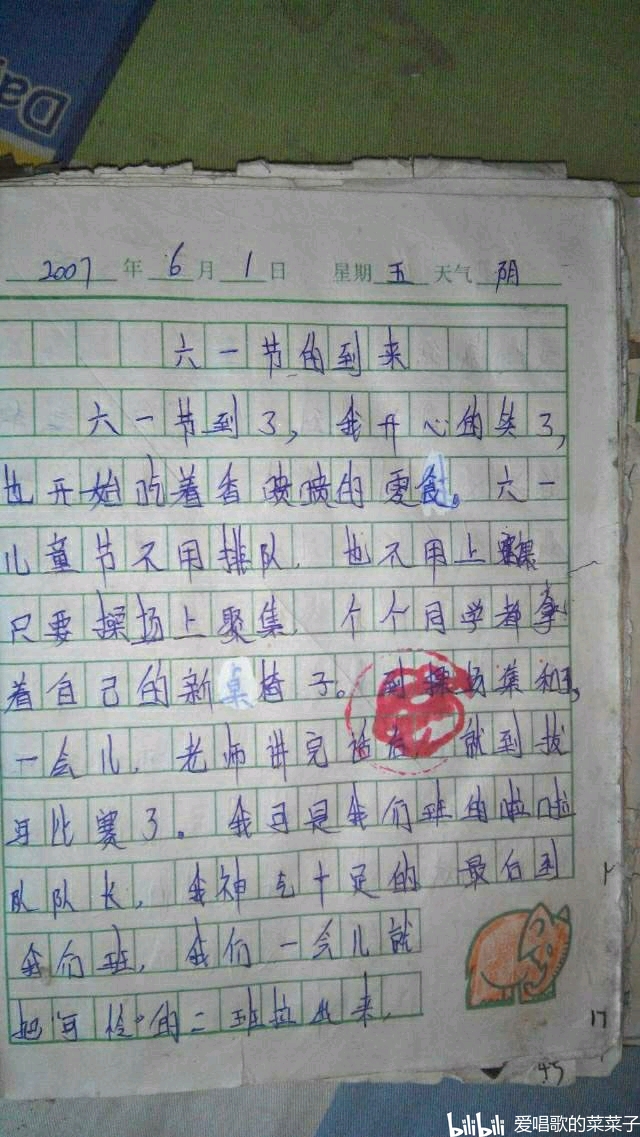 Daj
2007年6月1日 星期五 天气阴
六一节的到来
六一节到了，我开心的笑了，
也开始吃着香喷喷的零食。六一
儿童节不用排队，也不用上课
只要操场上聚集，个个同学都拿
着自己的新桌椅子。到操场集和了，
一会儿，老师讲完话后，就到拔
可比赛了。我可是我们班的啦啦
队队长，我神气十足的 最后到
我们班，我们一会儿就
把可怜的二班拉出来，
17
45
bilibili 爱唱歌的菜菜子